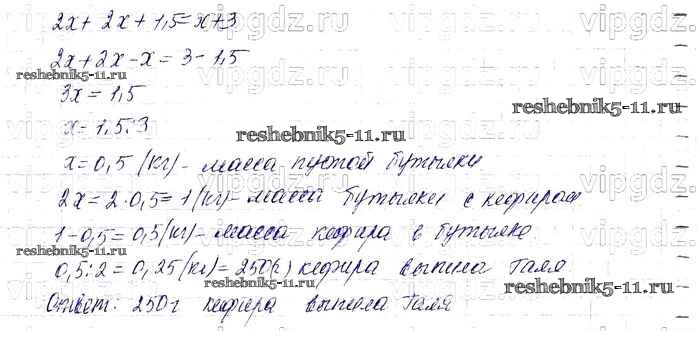 2x + 2x + 1,5 = x + 3
2x + 2x - x = 3 - 1,5
reshebnik5-11.ru
3x = 1,5
x = 1,5:3
reshebnik5-11.ru
x = 0,5 (кг) - масса пустой бутылки
2x = 2·0,5 = 1 (кг) - масса бутылки с кефиром
1 - 0,5 = 0,5 (кг) - масса кефира в бутылке
reshebnik5-11.ru
0,5:2 = 0,25 (кг) = 250(г) кефира выпила Галя
reshebnik5-11.ru
reshebnik5-11.ru
Ответ: 250 г кефира выпила Галя
vipgdz.ru